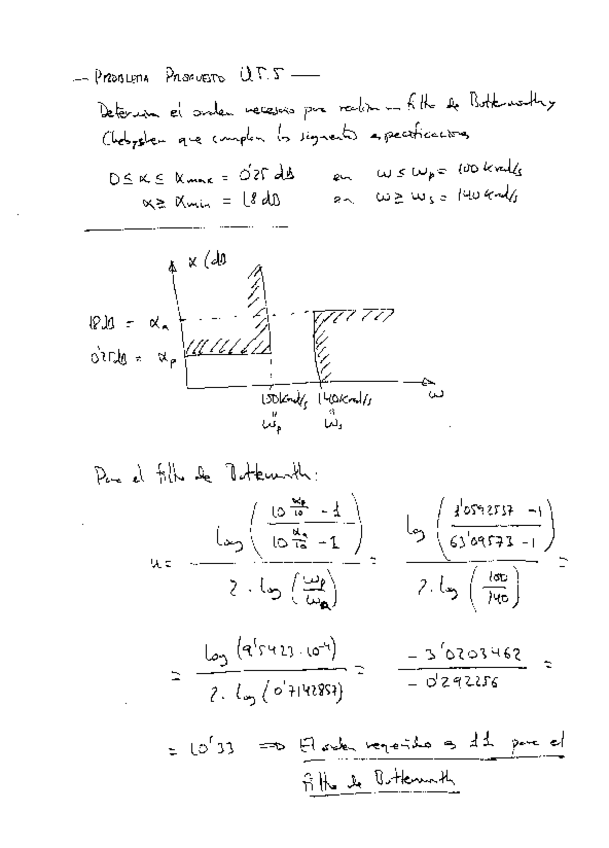 — PROBLEMA PROPUESTO U T.5 —
Determina el orden necesario para realizar un filtro de Butterworth y
Chebyshev que cumplan las siguientes especificaciones
0 ≤ α ≤ αmax = 0'25 dB en ω ≤ ωp = 100 krad/s
α ≥ αmin = 18 dB en ω ≥ ωs = 140 krad/s
α (dB
18 dB = αa
0'25 dB = αp
100krad/s 140krad/s ω
= =
ωp ωs
Para el filtro de Butterworth:
n = log ( (10^(αp/10) - 1) / (10^(αa/10) - 1) ) / ( 2 · log (ωp/ωa) ) = log ( (1'0592537 - 1) / (63'09573 - 1) ) / ( 2 · log (100/140) ) =
= log (9'5423·10^-4) / ( 2 · log (0'7142857) ) = - 3'0203462 / - 0'292256 =
= 10'33 ⇒ El orden requerido es 11 para el
filtro de Butterworth